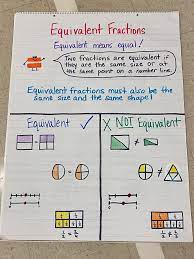 Equivalent Fractions
Equivalent means equal! ✓
Two fractions are equivalent if
they are the same size or at
the same point on a number line.
Equivalent fractions must also be the
same size and the same shape!
Equivalent ✓
X NOT Equivalent
=
≠
=
≠